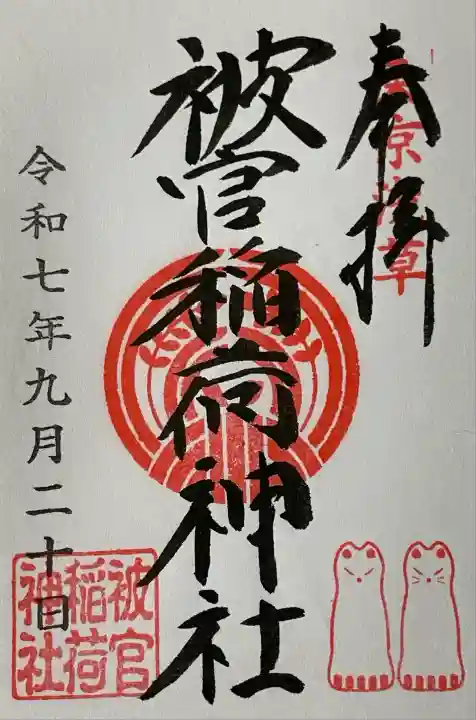 奉拝
東京浅草
被官稲荷神社
令和七年九月二十日
被官
稲荷
神社